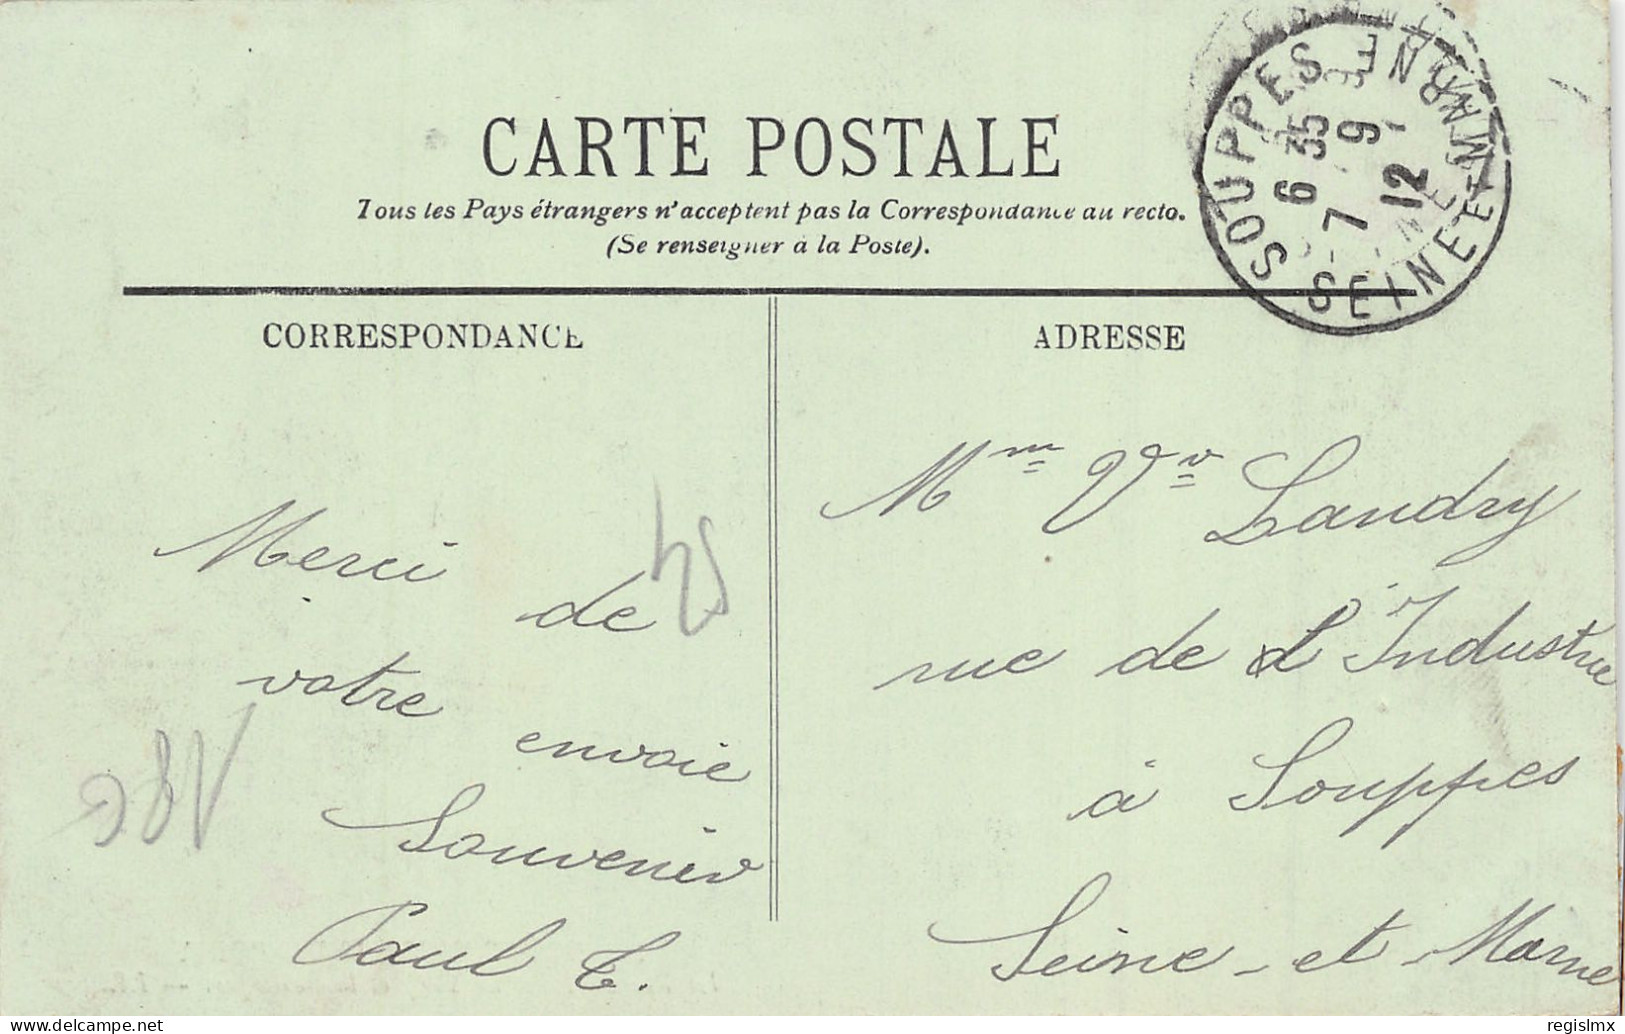 CARTE POSTALE
Tous les Pays étrangers n'acceptent pas la Correspondance au recto.
(Se renseigner à la Poste).
SOUPPES
SEINE ET MARNE
6 35
7 9
12
CORRESPONDANCE
Merci
de
votre
envoie
Souvenir
Paul T.
ADRESSE
Mme Vve Landry
rue de L'Industrie
à Souppes
Seine-et-Marne
www.delcampe.net
regislmx